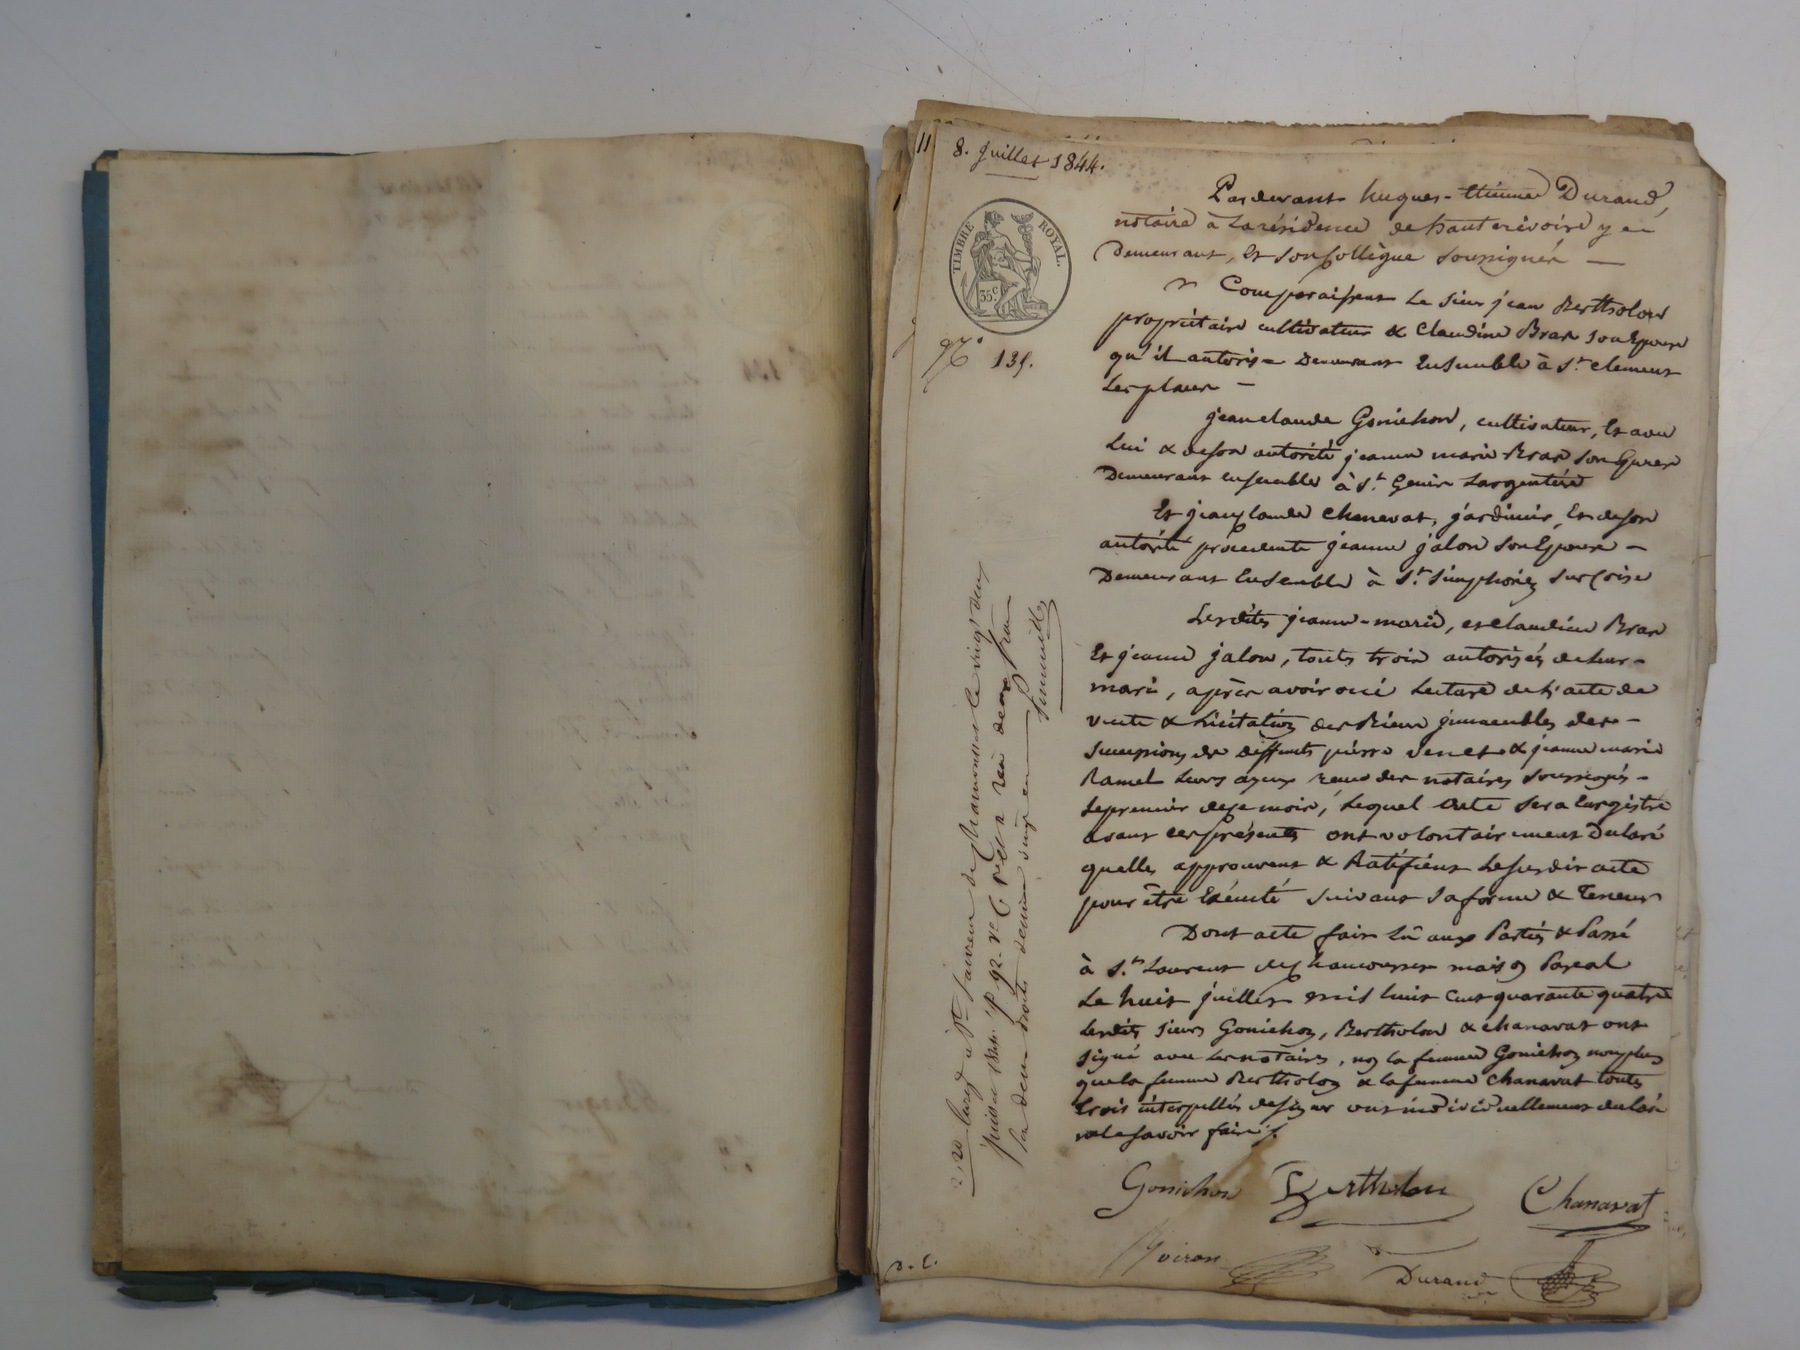 11
8. Juillet 1844.
TIMBRE ROYAL.
35.c
No 135.
Pardevant hugues-Etienne Durand,
notaire à La résidence de hauterivoire y
Demeurant, Et Son Collègue Soussignés —
Comparaissent Le Sieur jean Bertholon
propriétaire cultivateur & Claudine Bras Son Epouse
qu'il autorise Demeurant Ensemble à St. Clement
Les places —
jean claude Gonichon, cultivateur, Et avec
Lui & de son autorité jeanne marie Bras Son Epouse
Demeurant ensembles à St. Genis Largentière
Et jean Claude Chanavat, jardinier, Et de son
autorité procédente jeanne jalon Son Epouse —
Demeurant Ensemble à St. Simphorien Sur Coise
Lesdites jeanne-marie, et Claudine Bras
Et jeanne jalon, toutes trois autorisées de leur-
maris, après avoir oui Lecture de L'acte de
vente & Licitation des Biens jmmeubles des-
Successions de deffunts pierre Venet & jeanne marie
Ramel Leurs ayeux reçu des notaires Soussignés-
Le premier de ce mois, Lequel acte Sera Enregistré
avant ces présentes ont volontairement Declaré
quelles approuvent & Ratifient Le susdit acte
pour être Exécuté Suivant Sa forme & Teneur
Dont acte fait Lû aux Parties & Passé
à St. Laurent de Chamousset maison Pascal
Le huit juillet mil huit cent quarante quatre
Lesdits Sieurs Gonichon, Bertholon & Chanavat ont
Signé avec Les notaires, non la femme Gonichon non plus
que la femme Bertholon & la femme Chanavat toutes
trois interpellées de signer ont individuellement declaré
ne le savoir faire
Gonichon Bertholon Chanavat
Durand
D. C.
Enreg. à St. Laurent de Chamousset le vingt deux
juillet 1844. fo 92. vo C. reçu deux francs